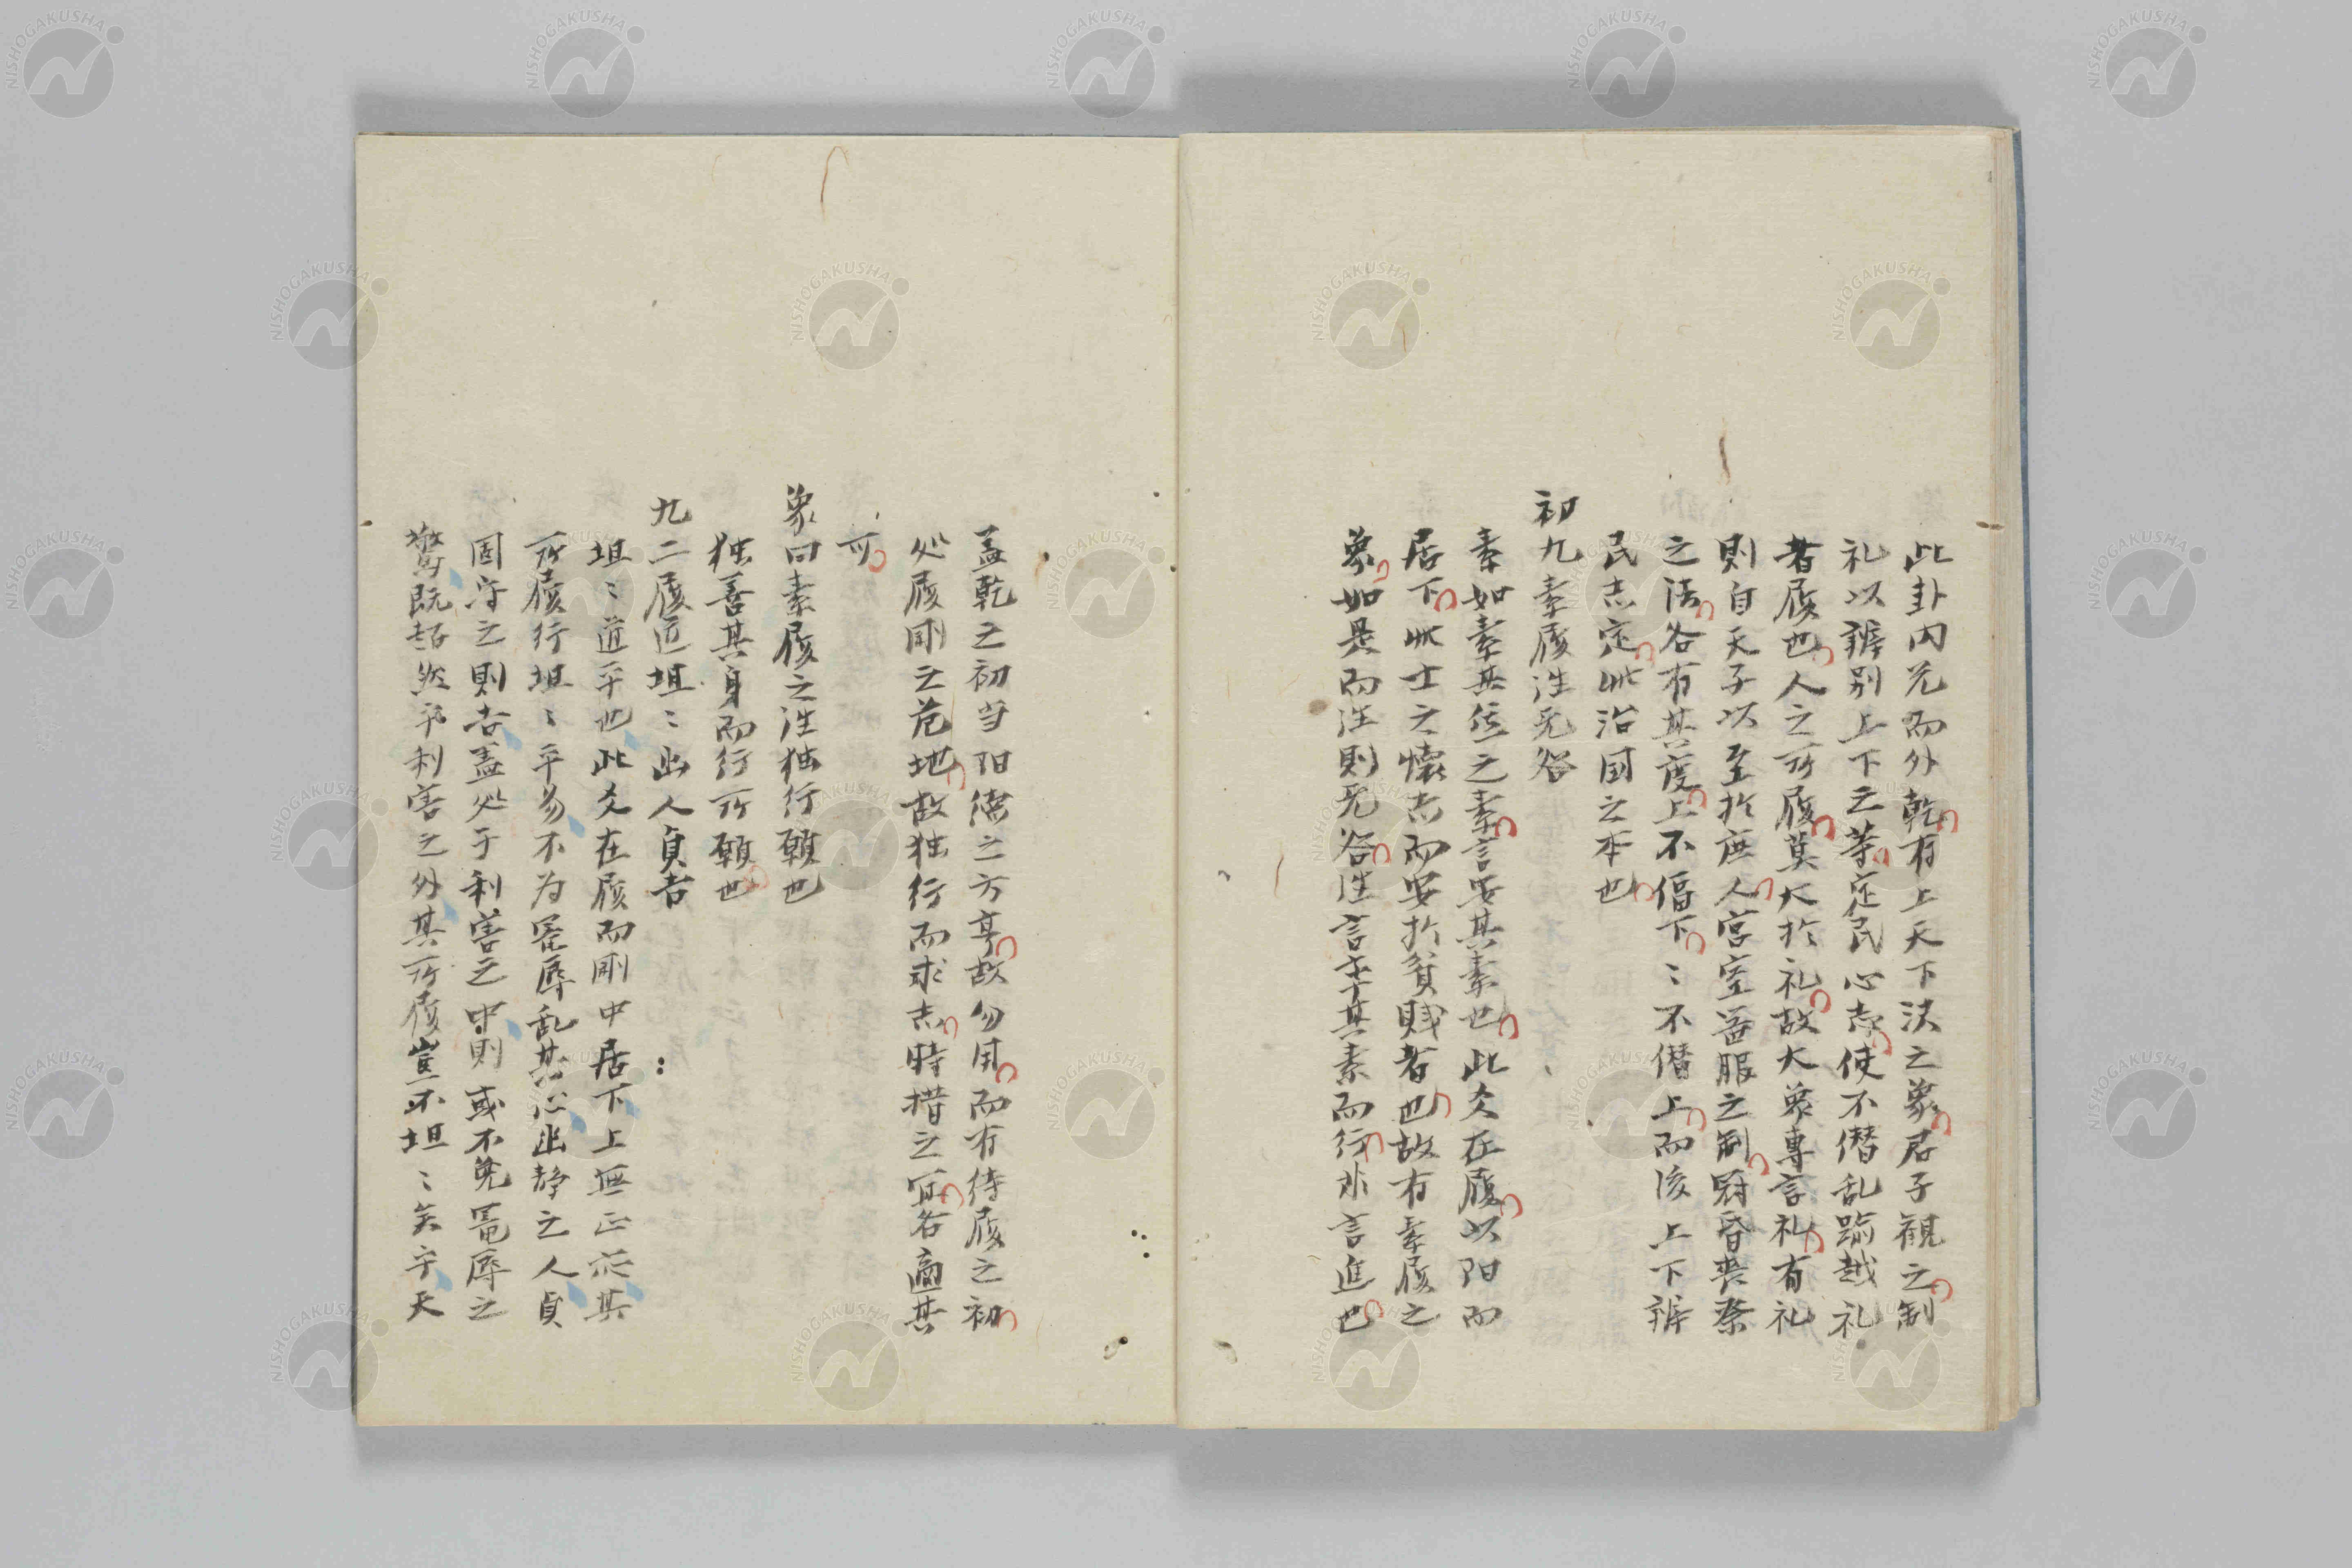 此卦内兌而外乾有上天下沢之象君子観之制
礼以辨別上下之等定民心志使不僭乱踰越礼
者履也人之所履莫大於礼故大象専言礼有礼
則自天子以至於庶人宮室器服之制冠昏喪祭
之法各有其度上不偪下〻不僭上而後上下辨
民志定此治国之本也
初九素履往无咎
素如素其位之素言安其素也此爻在履以阳而
居下此士之懐志而安於貧賎者也故有素履之
象如是而往則无咎往言率其素而行非言進也
盖乾之初当阳徳之方亨故勿用而有待履之初
処履剛之危地故独行而求志時措之宜各適其
可
象曰素履之往独行願也
独善其身而行所願也
九二履道坦〻幽人貞吉
坦〻道平也此爻在履而剛中居下上無正応其
所履行坦〻平易不为寵辱乱其心幽静之人貞
固守之則吉盖処于利害之中則或不免寵辱之
驚既超然乎利害之外其所履豈不坦〻矣乎天